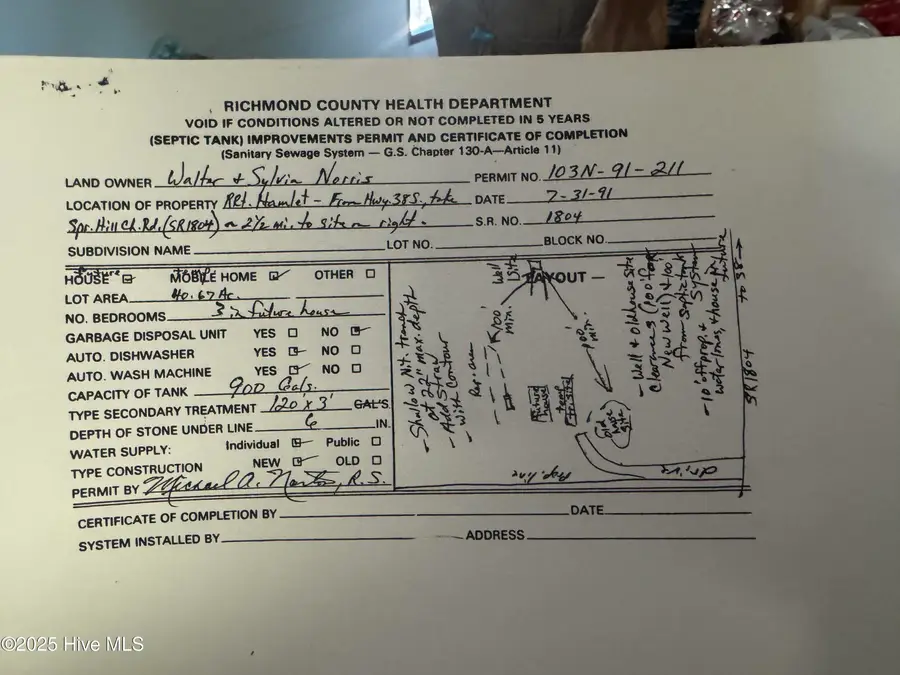 RICHMOND COUNTY HEALTH DEPARTMENT
VOID IF CONDITIONS ALTERED OR NOT COMPLETED IN 5 YEARS
(SEPTIC TANK) IMPROVEMENTS PERMIT AND CERTIFICATE OF COMPLETION
(Sanitary Sewage System — G.S. Chapter 130-A—Article 11)
LAND OWNER Walter & Sylvia Norris PERMIT NO. 103N-91-211
LOCATION OF PROPERTY RRt. Hamlet - From Hwy. 38S, take DATE 7-31-91
Spr. Hill Ch. Rd. (SR1804) ~ 2½ mi. to site on right. S.R. NO. 1804
SUBDIVISION NAME LOT NO. BLOCK NO.
future temp
HOUSE MOBILE HOME OTHER
LOT AREA 40.67 Ac.
NO. BEDROOMS 3 in future house
GARBAGE DISPOSAL UNIT YES NO
AUTO. DISHWASHER YES NO
AUTO. WASH MACHINE YES NO
CAPACITY OF TANK 900 Gals.
TYPE SECONDARY TREATMENT 120' x 3' GAL'S
DEPTH OF STONE UNDER LINE 6 IN.
WATER SUPPLY: Individual Public
TYPE CONSTRUCTION NEW OLD
PERMIT BY Michael A. Norton, R.S.
LAYOUT —
- Shallow Nit. trench
at 22" max. depth
- Add Straw
- With Contour
Rep. area
100'
min.
Well
Site
future
house
temp
100'
min.
Old
house
site
- Well & Old house site
clearances (100' from
New well) & 100'
from septic tank
system
- 10' off prop. &
water lines, & house
future
prop. line
drive
SR1804
to 38
CERTIFICATE OF COMPLETION BY DATE
SYSTEM INSTALLED BY ADDRESS
©2025 Hive MLS